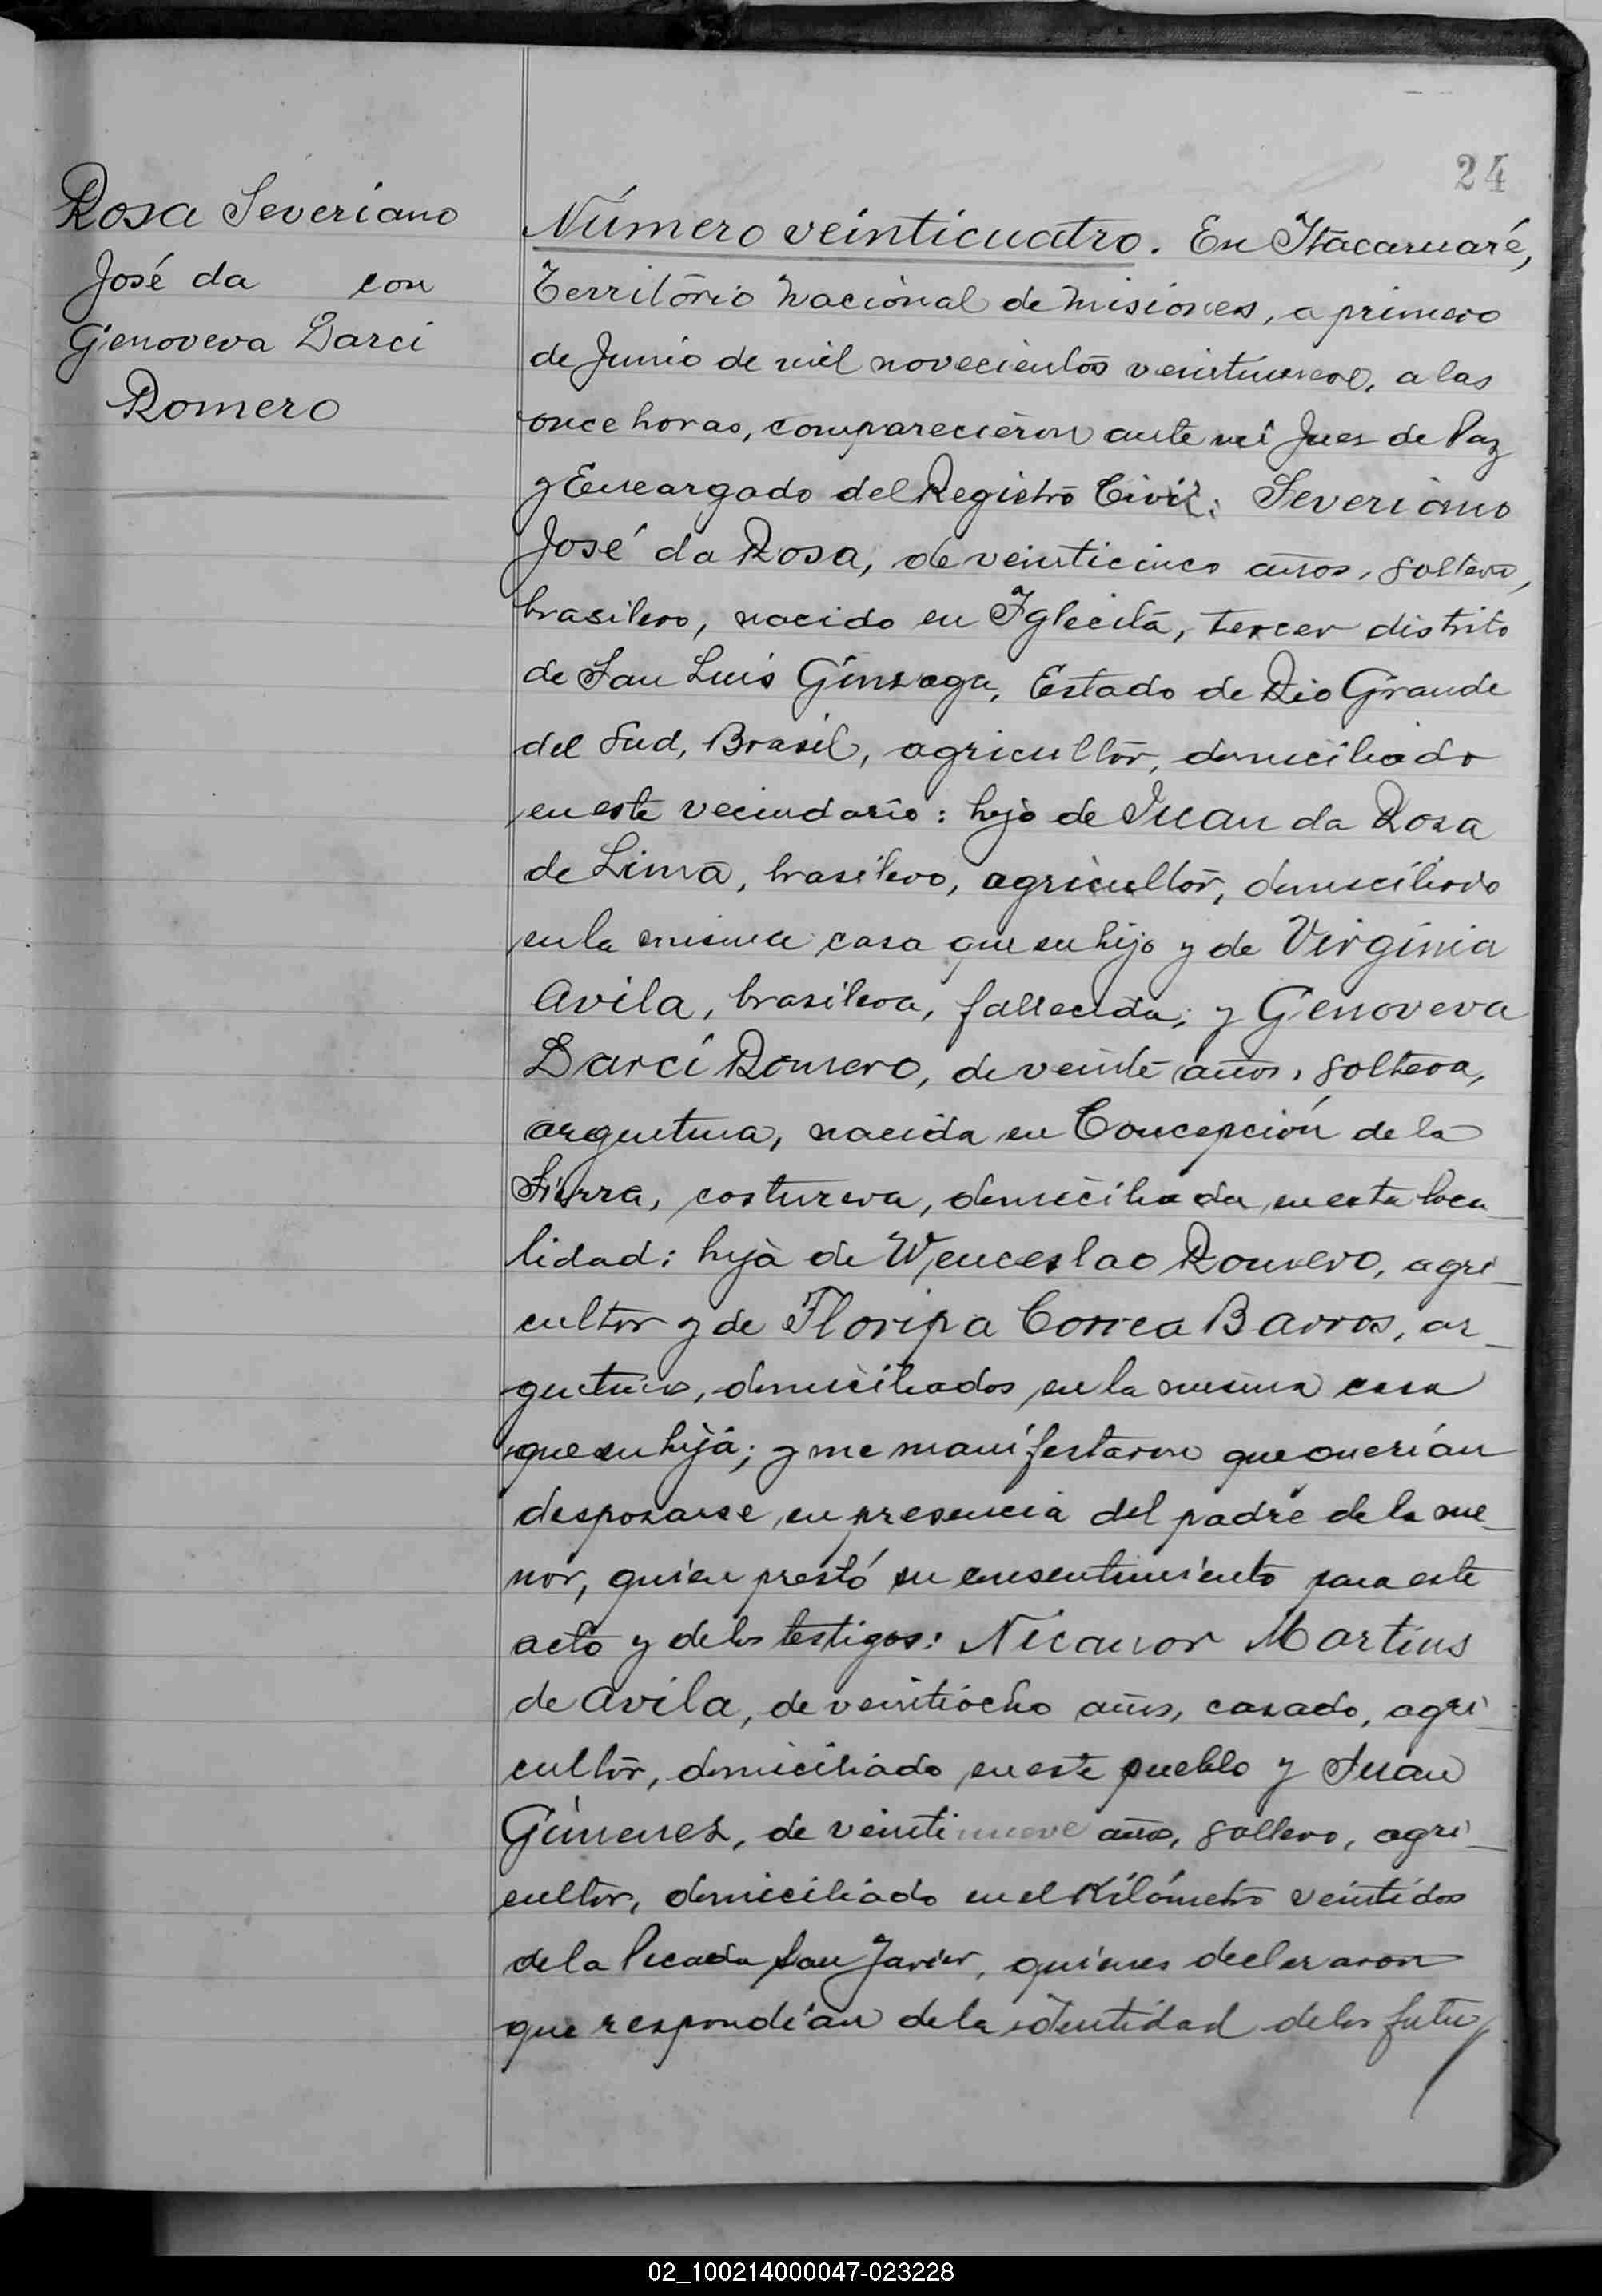 24
Rosa Severiano
José da con
Genoveva Darci
Romero
Número veinticuatro. En Itacaruaré,
Territorio Nacional de Misiones, a primero
de Junio de mil novecientos veintinueve, a las
once horas, comparecieron ante mi Juez de Paz
y Encargado del Registro Civil: Severiano
José da Rosa, de veinticinco años, soltero,
brasilero, nacido en Iglecita, tercer distrito
de San Luis Gonzaga, Estado de Rio Grande
del Sud, Brasil, agricultor, domiciliado
en este vecindario: hijo de Juan da Rosa
de Lima, brasilero, agricultor, domiciliado
en la misma casa que su hijo y de Virginia
Avila, brasilera, fallecida; y Genoveva
Darci Romero, de veinte años, soltera,
argentina, nacida en Concepción de la
Sierra, costurera, domiciliada en esta loca_
lidad: hija de Wenceslao Romero, agri_
cultor y de Floripa Correa Barros, ar_
gentinos, domiciliados en la misma casa
que su hija; y me manifestaron que querían
desposarse en presencia del padre de la me_
nor, quien prestó su consentimiento para este
acto y de los testigos: Nicanor Martins
de Avila, de veintiocho años, casado, agri_
cultor, domiciliado en este pueblo y Juan
Gimenez, de veintinueve años, soltero, agri_
cultor, domiciliado en el Kilómetro veintidos
de la Picada San Javier, quienes declararon
que respondían de la identidad de los futu
02_100214000047-023228